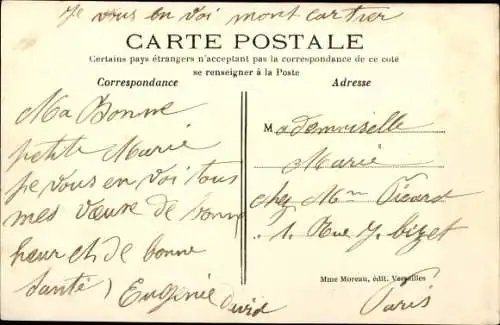 Je vous en voi mont cartier
CARTE POSTALE
Certains pays étrangers n'acceptent pas la correspondance de ce coté
se renseigner à la Poste
Correspondance
Adresse
Ma Bonne
petite Marie
je vous en voi tous
mes vœuse de bonne
et de bonne
santé
Eugénie
Mademoiselle
Marie
chez Mme Picard
1. Rue J. bizet
Mme Moreau, édit. Versailles
Paris